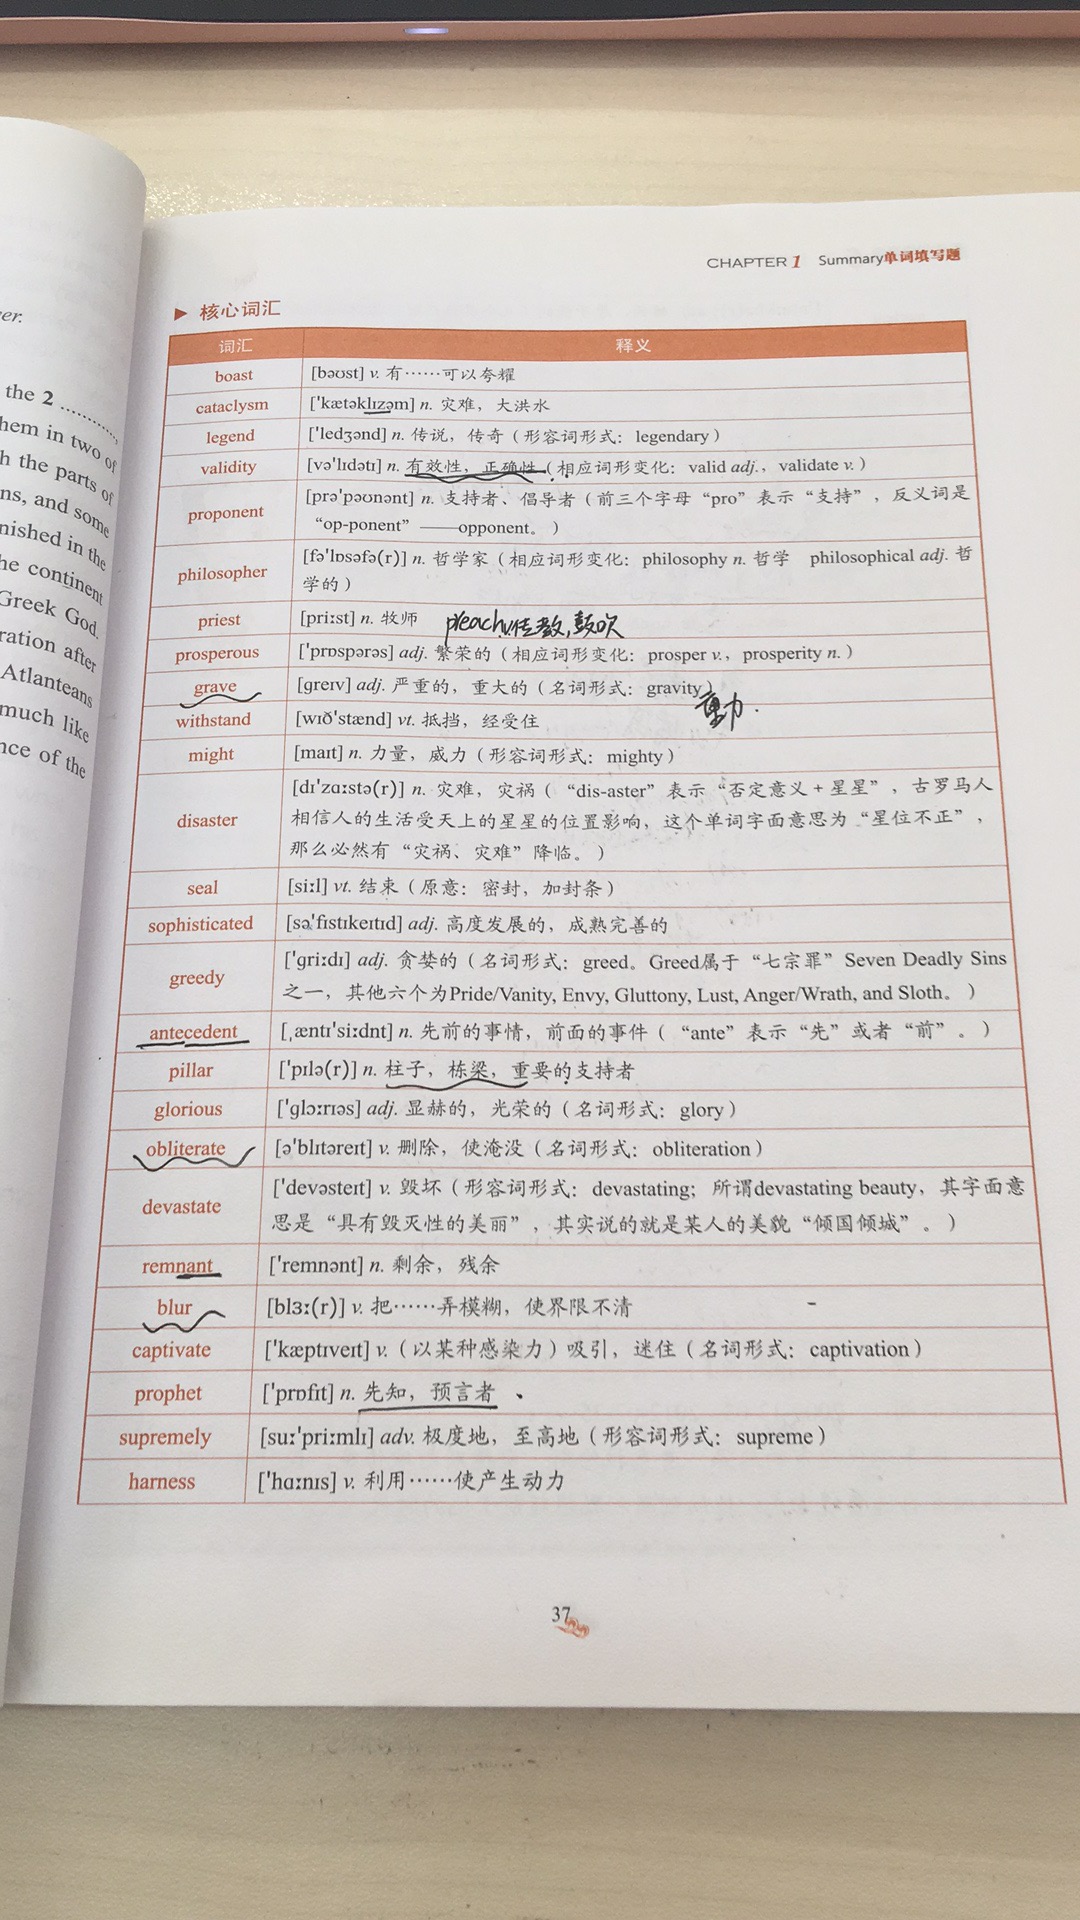 er.
the 2 ............,
hem in two of
h the parts of
ns, and some
nished in the
he continent
Greek God.
ration after
Atlanteans
much like
nce of the
CHAPTER 1 Summary单词填写题
▶ 核心词汇
词汇 释义
boast [bəʊst] v. 有……可以夸耀
cataclysm ['kætəklɪzəm] n. 灾难，大洪水
legend ['ledʒənd] n. 传说，传奇（形容词形式：legendary）
validity [və'lɪdətɪ] n. 有效性，正确性（相应词形变化：valid adj.，validate v.）
proponent [prə'pəʊnənt] n. 支持者、倡导者（前三个字母“pro”表示“支持”，反义词是
“op-ponent”——opponent。）
philosopher [fə'lɒsəfə(r)] n. 哲学家（相应词形变化：philosophy n. 哲学 philosophical adj. 哲
学的）
priest [priːst] n. 牧师 preach v.传教,鼓吹
prosperous ['prɒspərəs] adj. 繁荣的（相应词形变化：prosper v.，prosperity n.）
grave [ɡreɪv] adj. 严重的，重大的（名词形式：gravity）
重力.
withstand [wɪð'stænd] vt. 抵挡，经受住
might [maɪt] n. 力量，威力（形容词形式：mighty）
disaster [dɪ'zɑːstə(r)] n. 灾难，灾祸（“dis-aster”表示“否定意义+星星”，古罗马人
相信人的生活受天上的星星的位置影响，这个单词字面意思为“星位不正”，
那么必然有“灾祸、灾难”降临。）
seal [siːl] vt. 结束（原意：密封，加封条）
sophisticated [sə'fɪstɪkeɪtɪd] adj. 高度发展的，成熟完善的
greedy ['ɡriːdɪ] adj. 贪婪的（名词形式：greed。Greed属于“七宗罪”Seven Deadly Sins
之一，其他六个为Pride/Vanity, Envy, Gluttony, Lust, Anger/Wrath, and Sloth。）
antecedent [ˌæntɪ'siːdnt] n. 先前的事情，前面的事件（“ante”表示“先”或者“前”。）
pillar ['pɪlə(r)] n. 柱子，栋梁，重要的支持者
glorious ['ɡlɔːrɪəs] adj. 显赫的，光荣的（名词形式：glory）
obliterate [ə'blɪtəreɪt] v. 删除，使淹没（名词形式：obliteration）
devastate ['devəsteɪt] v. 毁坏（形容词形式：devastating；所谓devastating beauty，其字面意
思是“具有毁灭性的美丽”，其实说的就是某人的美貌“倾国倾城”。）
remnant ['remnənt] n. 剩余，残余
blur [blɜː(r)] v. 把……弄模糊，使界限不清
captivate ['kæptɪveɪt] v.（以某种感染力）吸引，迷住（名词形式：captivation）
prophet ['prɒfɪt] n. 先知，预言者
supremely [suː'priːmlɪ] adv. 极度地，至高地（形容词形式：supreme）
harness ['hɑːnɪs] v. 利用……使产生动力
37